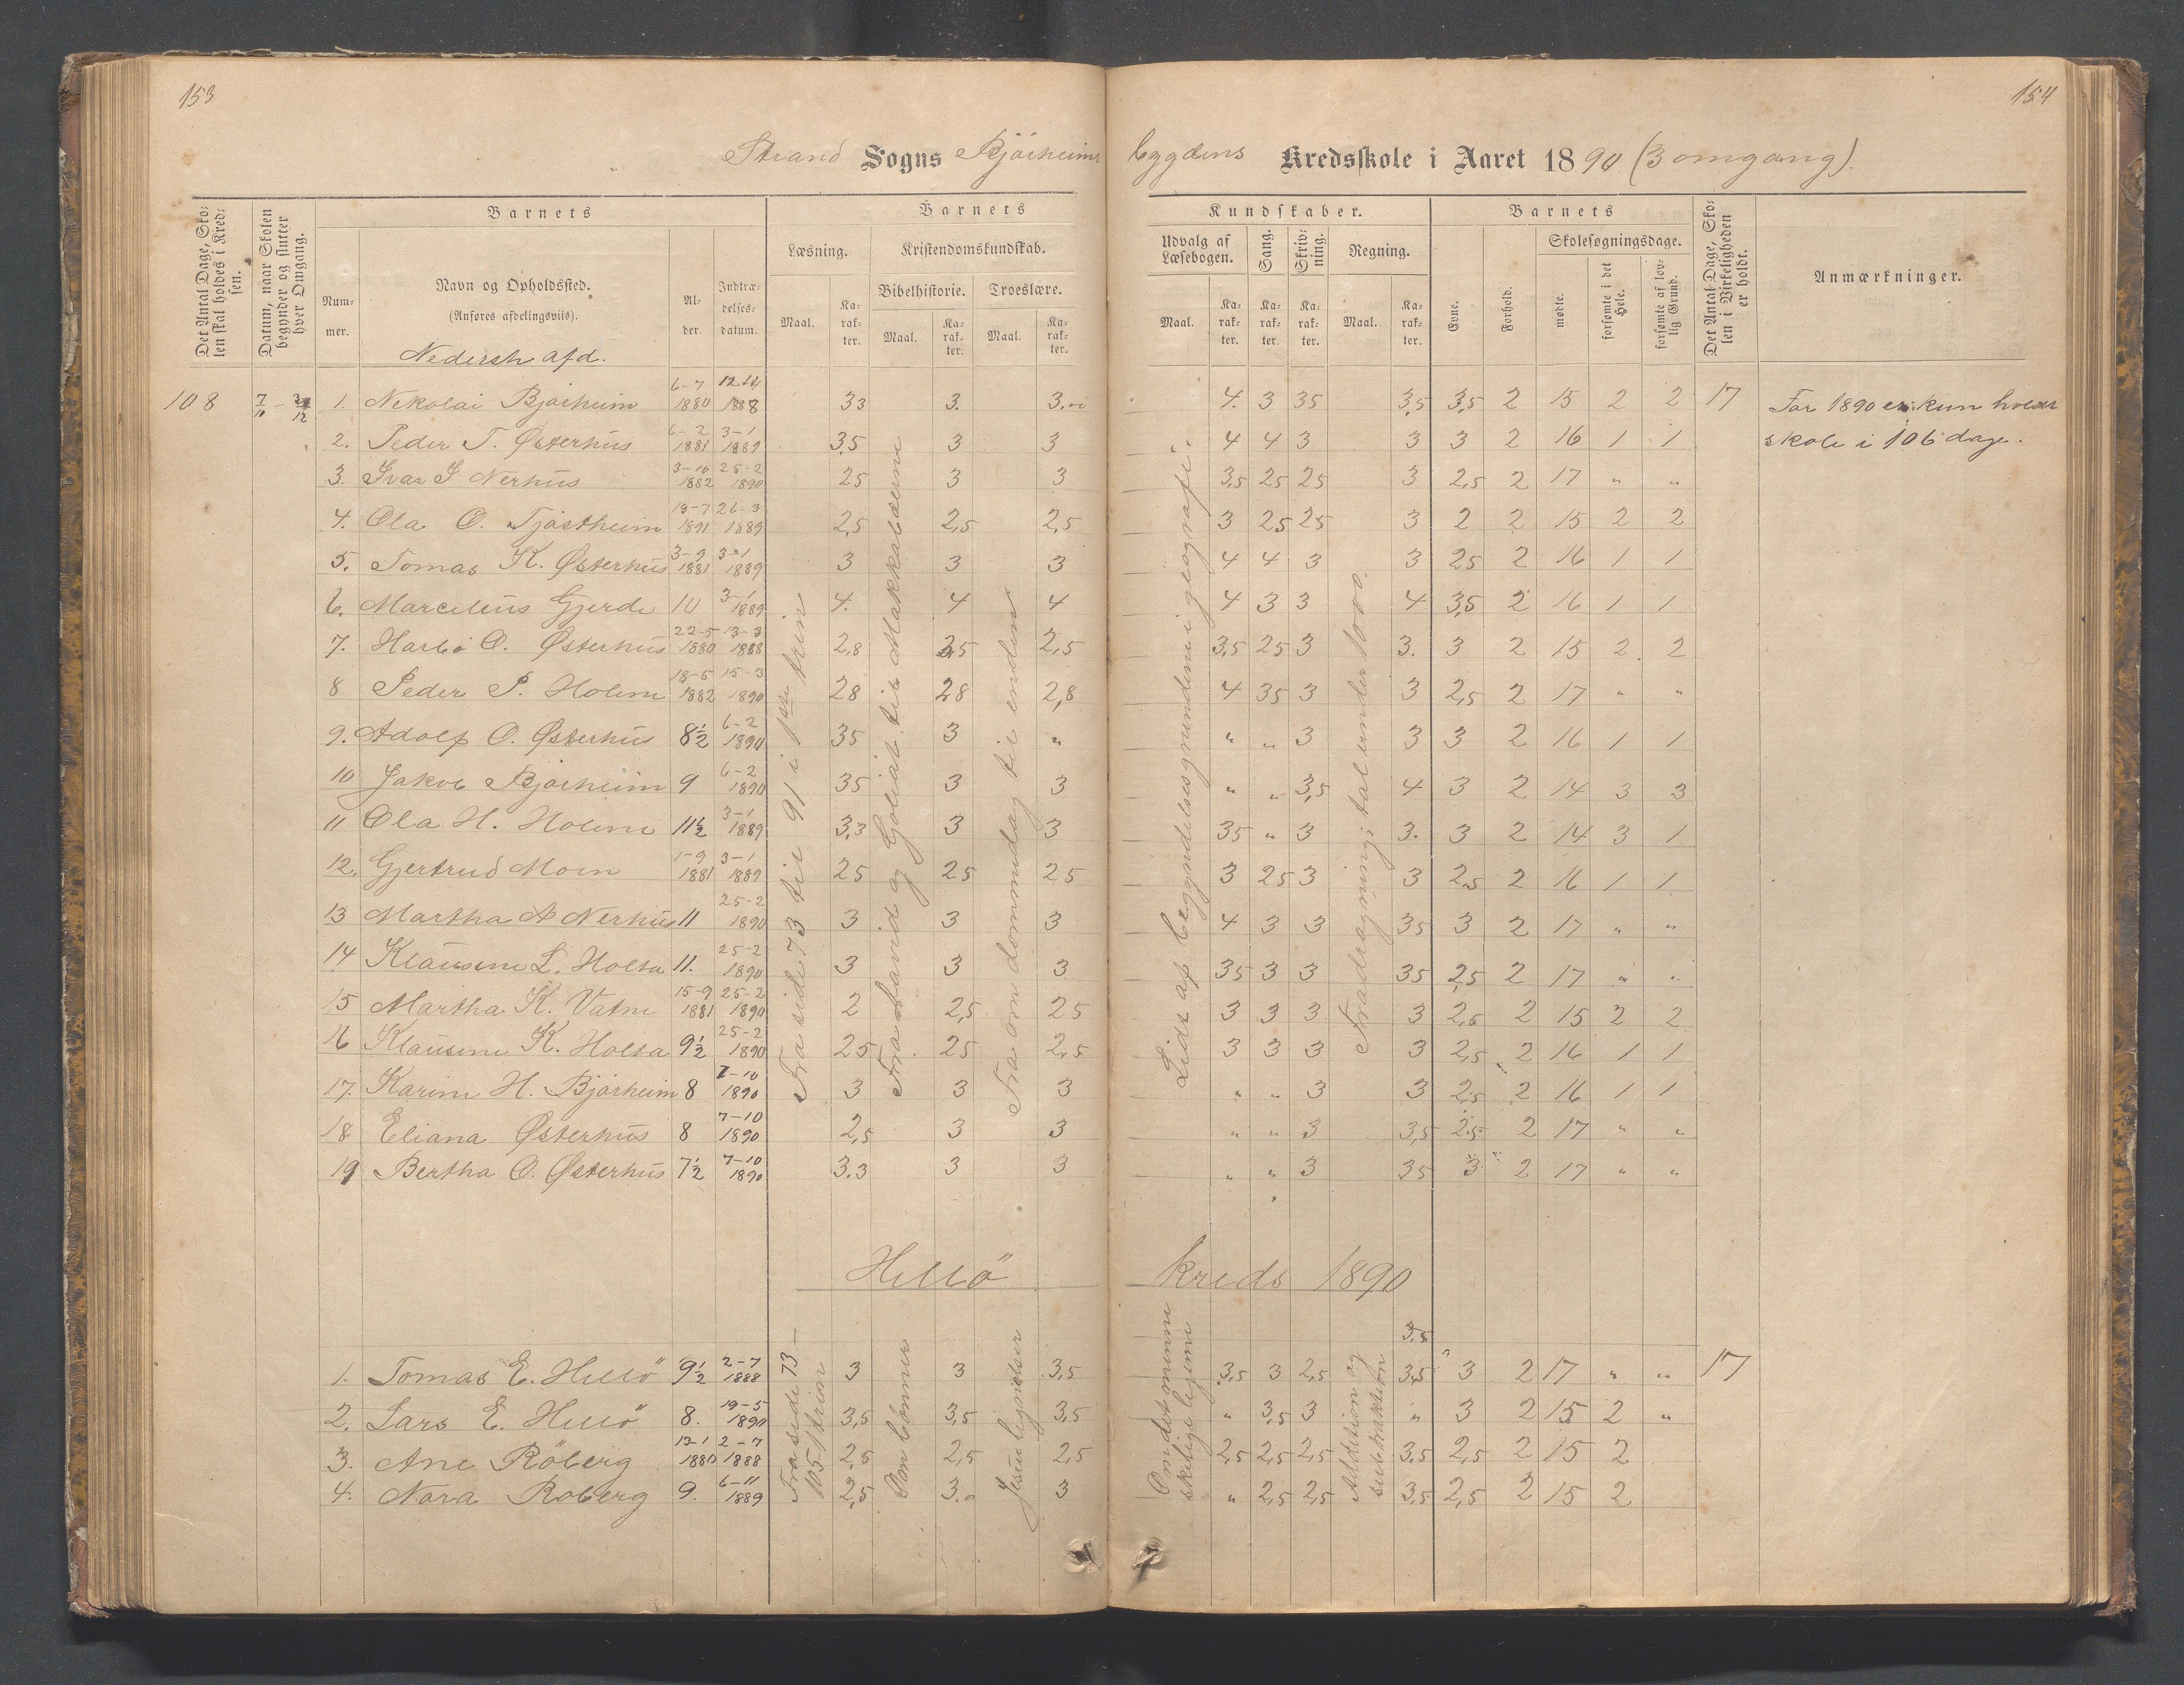 153
154
Strand Sogns Bjørheims bygdens Kredsskole i Aaret 1890 (3 omgang).
Det Antal Dage, Skolen skal holdes i Kredsen.
Datum, naar Skolen begynder og slutter hver Omgang.
Barnets
Nummer.
Navn og Opholdssted.
(Anføres afdelingsviis).
Nederste afd.
Alder.
Indtrædelsesdatum.
Barnets
Læsning.
Maal.
Karakter.
Kristendomskundskab.
Bibelhistorie.
Maal.
Karakter.
Troeslære.
Maal.
Karakter.
Kundskaber.
Udvalg af Læsebogen.
Maal.
Karakter.
Sang.
Karakter.
Skrivning.
Karakter.
Regning.
Maal.
Karakter.
Barnets
Evne.
Forhold.
Skolesøgningsdage.
mødte.
forsømte i det Hele.
forsømte af lovlig Grund.
Det Antal Dage, Skolen i Virkeligheden er holdt.
Anmærkninger.
108
1. Nikolai Bjørheim 6-7 1880 12.12 1888 33 3. 3. 4. 3 35 3,5 3,5 2 15 2 2 17 For 1890 er kun holdt
2. Peder T. Østerhus 6-2 1881 3-1 1889 3,5 3 3 4 4 3 3 3 2 16 1 1 skole i 106 dage.
3. Ivar I Nerhus 3-10 1882 25-2 1890 25 3 3 3,5 25 25 3 2,5 2 17 " "
4. Ola O. Tjøstheim 18-7 1891 26-3 1889 2,5 2,5 2,5 3 25 25 3 2 2 15 2 2
5. Tomas K. Østerhus 3-9 1881 3-1 1889 3 3 3 4 4 3 3 25 2 16 1 1
6. Marcelius Gjerde 10 3-1 1889 4. 4 4 4 3 3 4 3,5 2 16 1 1
7. Harbo O. Østerhus 22-5 1880 13-3 1888 2,8 2,5 2,5 3,5 25 3 3. 3 2 15 2. 2
8 Peder P. Holme 18-5 1882 15-3 1890 28 28 2,8 4 35 3 3 2,5 2 17 " "
9. Adolf O. Østerhus 8½ 6-2 1890 35 3 " " " 3 3 3 2 16 1 1
10 Jakob Bjørheim 9 6-2 1890 35 3 3 " " 3,5 4 3 2 14 3 3
11 Ola H. Holme 11½ 3-1 1889 3,3 3 3 35 " 3 3. 3 2 14 3 1
12. Gjertrud Moen 1-9 1881 3-1 1889 25 25 25 3 25 3 3 2,5 2 16 1 1
13 Martha A Nerhus 11 25-2 1890 3 3 3 4 3 3 35 3 2 17 " "
14 Klausine L. Holta 11. 25-2 1890 3 3 3 35 3 3 35 2,5 2 17 " "
15 Martha K. Vatne 15-9 1881 25-2 1890 2 2,5 25 3 3 3 3 2,5 2 15 2 2
16 Klausine K. Holta 9½ 25-2 1890 25 25 2,5 3 3 3 3 2,5 2 16 1 1
17. Karine H. Bjørheim 8 7-10 1890 3 3 3 " " 3 3 2,5 2 16 1 1
18 Eliana Østerhus 8 7-10 1890 2,5 3 3 " " 3 3,5 2,5 2 17 " "
19 Bertha O. Østerhus 7½ 7-10 1890 3.3 3 3 " " 3 35 3 2 17 " "
Fra side 73 til 91 i 1ste trin
Fra David og Goliat til Makkabæerne
Fra om dommedag til enden
Lidt af begyndelsesgrundene i geografi.
Fradragning i tal under 1000.
Hellö kreds 1890
3,5
1. Tomas E. Hellö 9½ 2-7 1888 3 3 3,5 3,5 3 2,5 3,5 3 2 17 " " 17
2. Lars E. Hellö 8. 19-5 1890 3,5 3,5 3,5 " 3,5 3 " 3 2 15 2 "
3. Ane Röberg 13-1 1880 2-7 1888 2,5 2,5 2,5 2,5 2,5 2,5 3.5 2,5 2 15 2
4. Nora Roberg 9. 6-11 1889 2,5 3. 3 " 2,5 2,5 3,5 2,5 2 15 2
Fra side 73 – 105 1 trin
Om bönner
Jesu lignelser
Om det menneskelige legeme
Addition og subtraktion